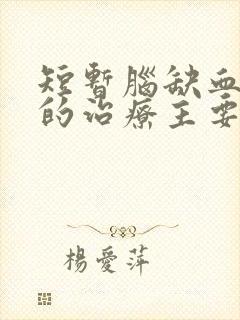 短暫腦缺血
的治療主要
楊愛萍